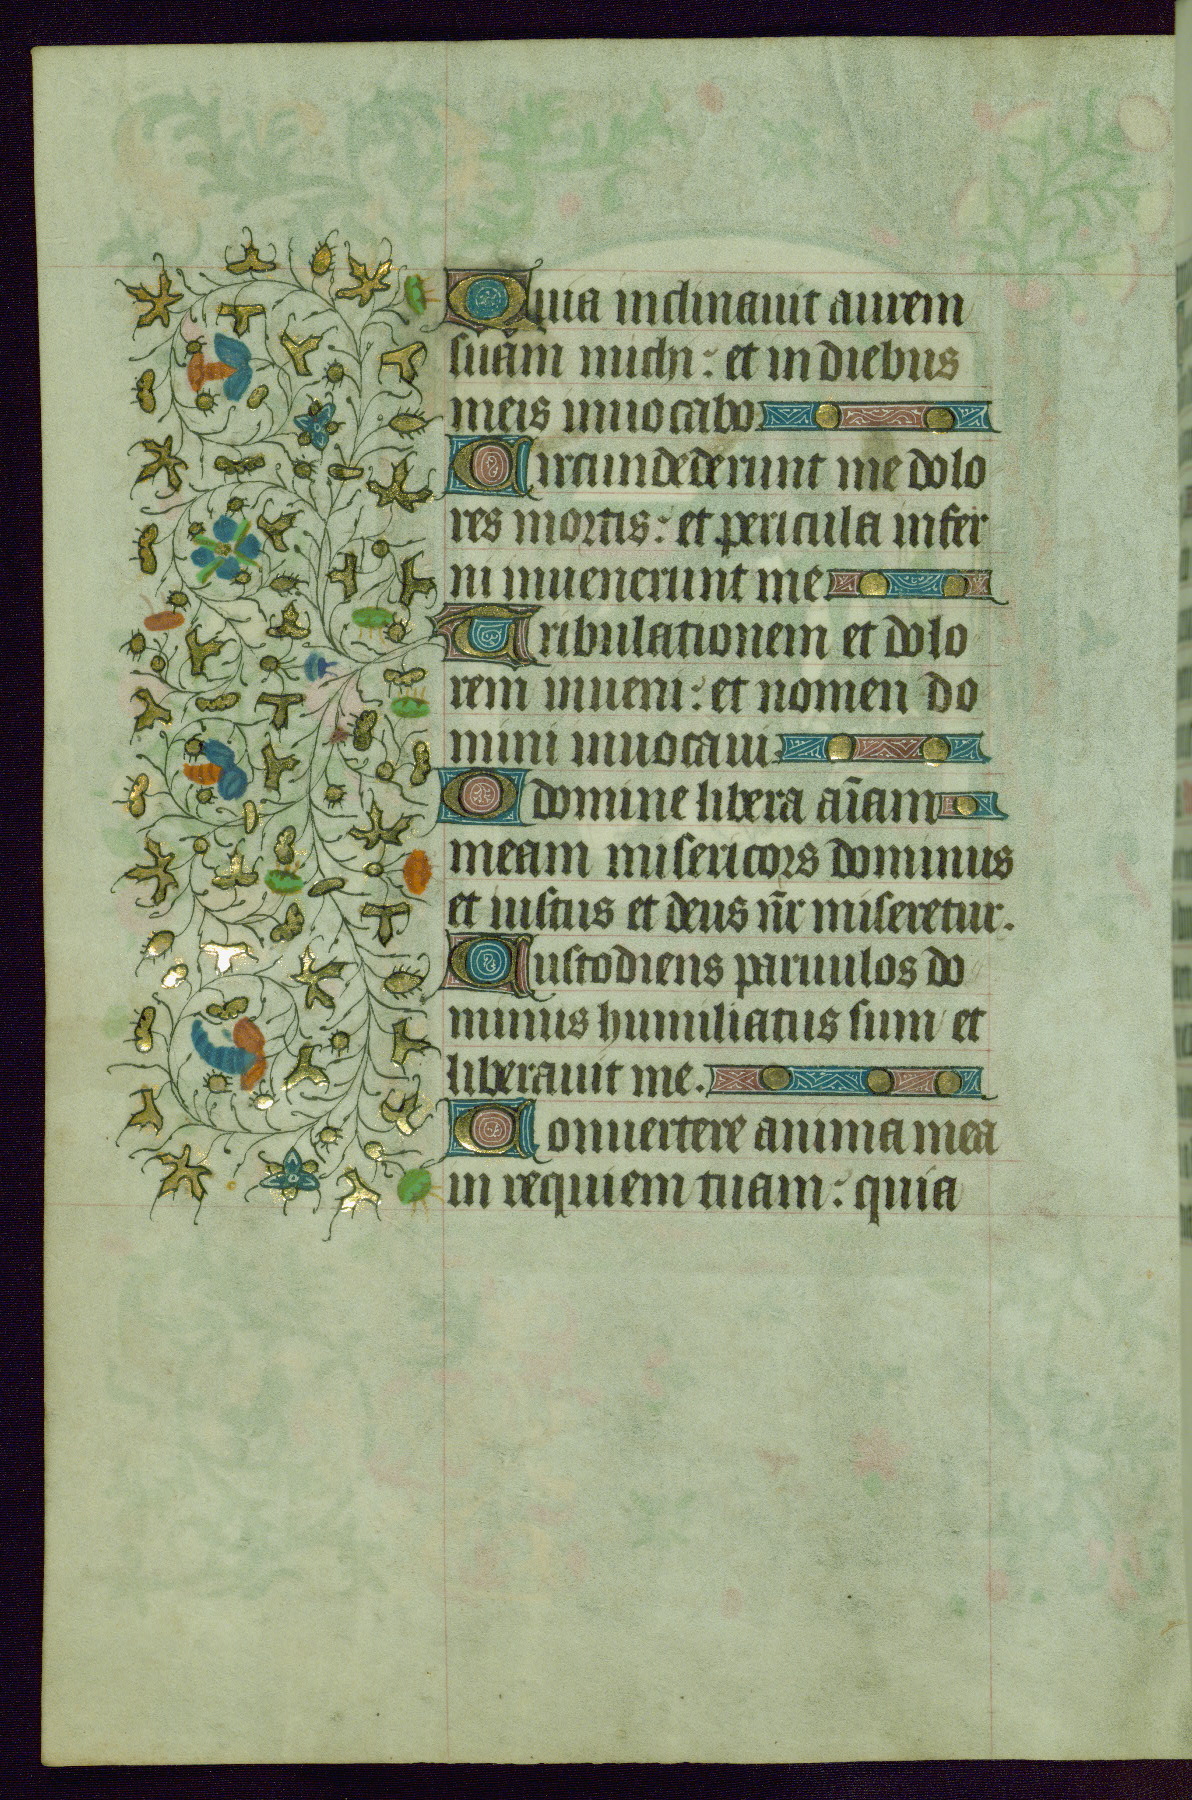 Quia inclinauit aurem
suam michi: et in diebus
meis inuocabo.
Circundederunt me dolo
res mortis: et pericula infer
ni inuenerunt me.
Tribulationem et dolo
rem inueni: et nomen do
mini inuocaui.
O domine libera aīam
meam misericors dominus
et iustus et deus nr̄ miseretur.
Custodiens paruulos do
minus humiliatus sum et
liberauit me.
Conuertere anima mea
in requiem tuam: quia